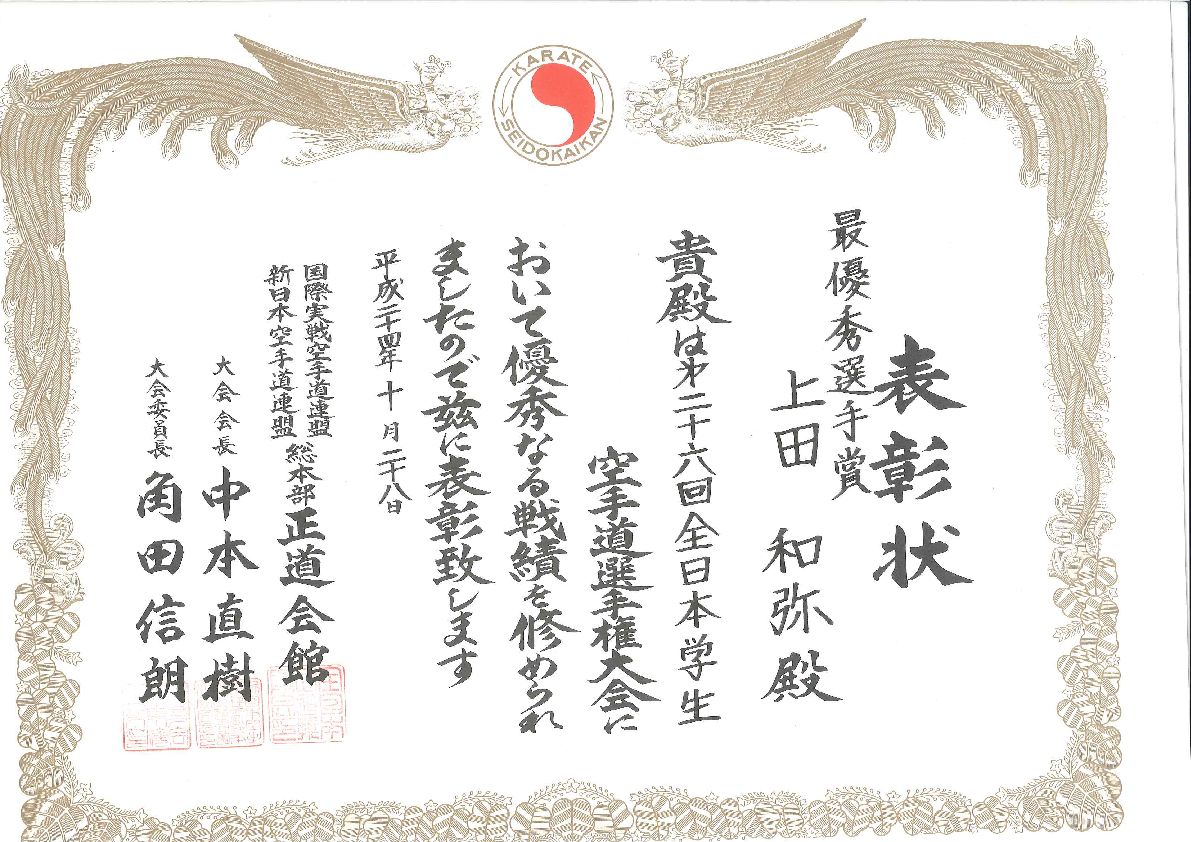 KARATE
SEIDOKAIKAN
表彰状
最優秀選手賞
上田 和弥 殿
貴殿は第二十六回全日本学生
空手道選手権大会に
おいて優秀なる戦績を修められ
ましたので茲に表彰致します
平成二十四年十月二十八日
国際実戦空手道連盟
新日本空手道連盟
総本部 正道会館
大会会長 中本直樹
大会委員長 角田信朗